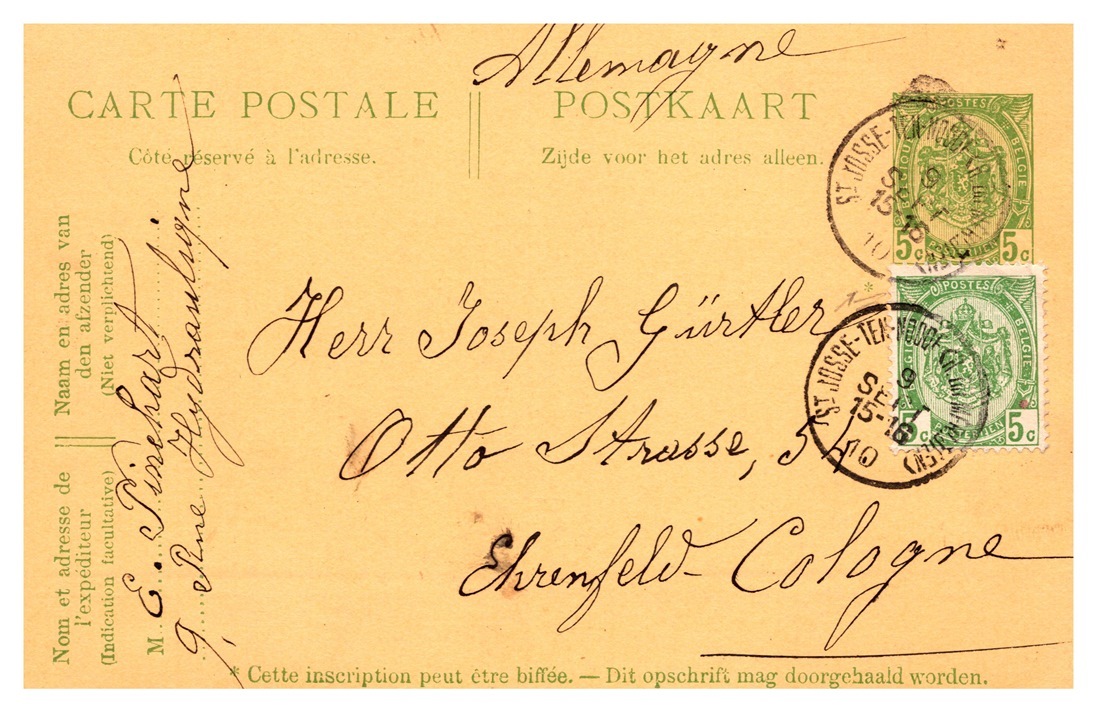 Allemagne
CARTE POSTALE
Côté réservé à l'adresse.
POSTKAART
Zijde voor het adres alleen.
POSTES
BELGIE
5c 5c
POSTERIJEN
ST JOSSE-TEN-NOODE
9
SEPT
15-16
10
*
POSTES
BELGIE
5c 5c
POSTERIJEN
ST JOSSE-TEN-NOODE
9
SEPT
15-16
10
Herr Joseph Gürtler
Otto Strasse, 54
Ehrenfeld-Cologne
Naam en adres van
den afzender
(Niet verplichtend)
Nom et adresse de
l'expéditeur
(Indication facultative)
M. E. Pinchart
9, Rue Hydraulique
* Cette inscription peut être biffée. — Dit opschrift mag doorgehaald worden.